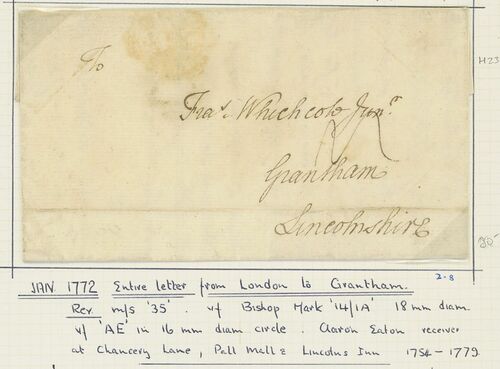 To
Fras. Whichcote Junr.
Grantham
Lincolnshire
H23
JAN 1772 Entire letter from London to Grantham. 2.8
Rev. m/s '35'. v/f Bishop Mark '14/IA' 18 mm diam.
v/f 'AE' in 16 mm diam circle. Aaron Eaton receiver
at Chancery Lane, Pall Mall & Lincolns Inn 1754-1779